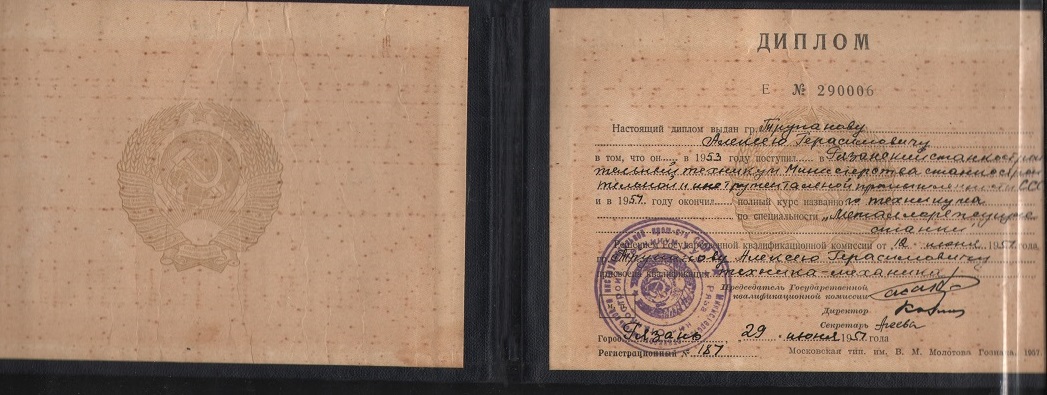 ДИПЛОМ
Е № 290006
Настоящий диплом выдан гр. Трупанову
Алексею Герасимовичу
в том, что он в 1953 году поступил в Рязанский станкострои
тельный техникум Министерства станкострои
тельной и инструментальной промышленности СССР
и в 1957 году окончил полный курс названного техникума
по специальности „Металлорежущие
станки"
Решением Государственной квалификационной комиссии от июня 1957 года,
Алексею Герасимовичу
присвоена квалификация техника-механика
Председатель Государственной
квалификационной комиссии
Директор
Секретарь Агеева
Город Рязань 29 июня 1957 года
Регистрационный № 187
Московская тип. им. В. М. Молотова Гознака. 1957.